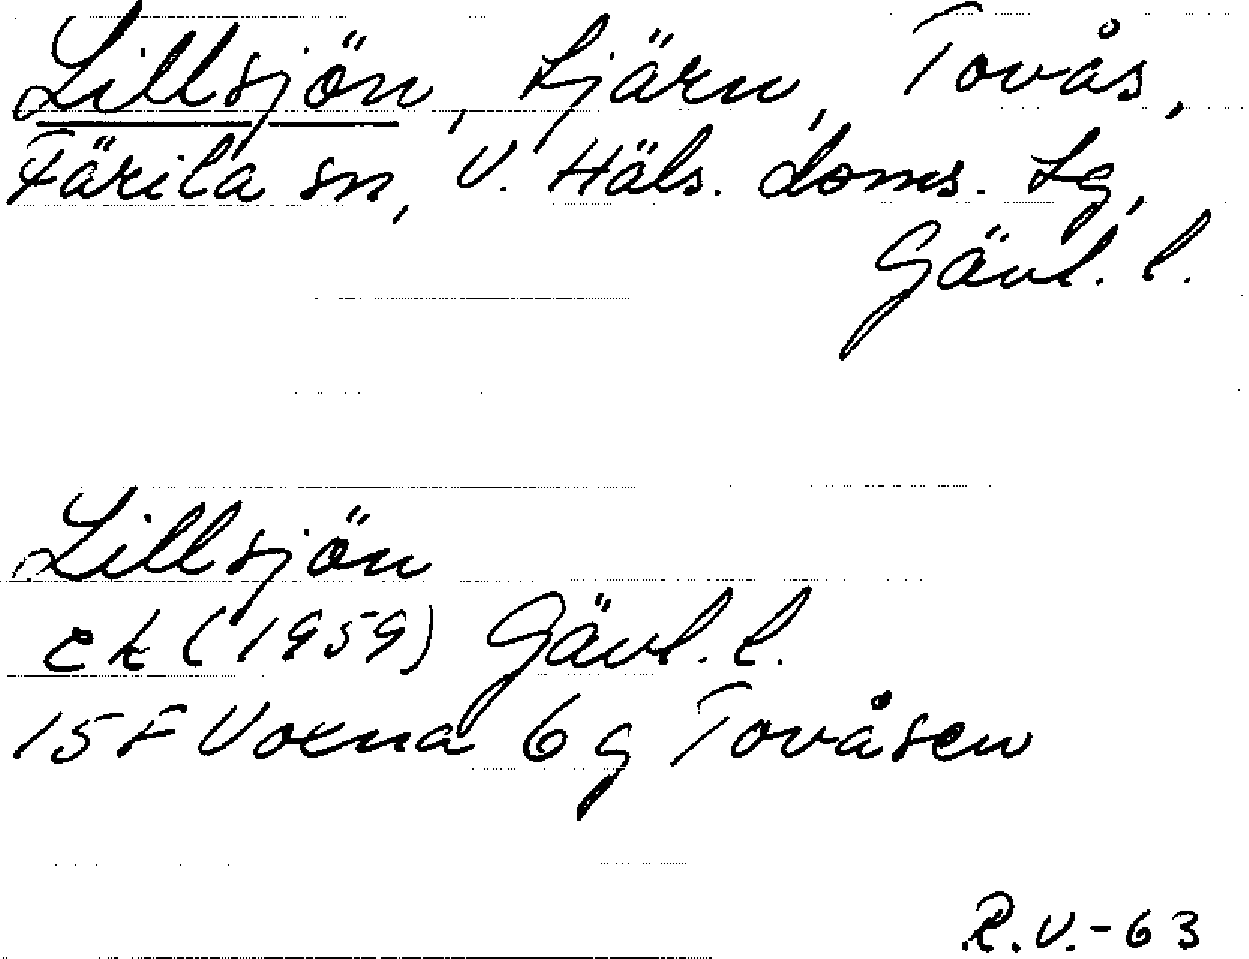 Lillsjön, tjärn, Tovås,
Färila sn, V. Häls. doms. tg,
Gävl. l.
Lillsjön
ek (1959) Gävl. l.
15F Voxna 6 g Tovåsen
R.V.-63